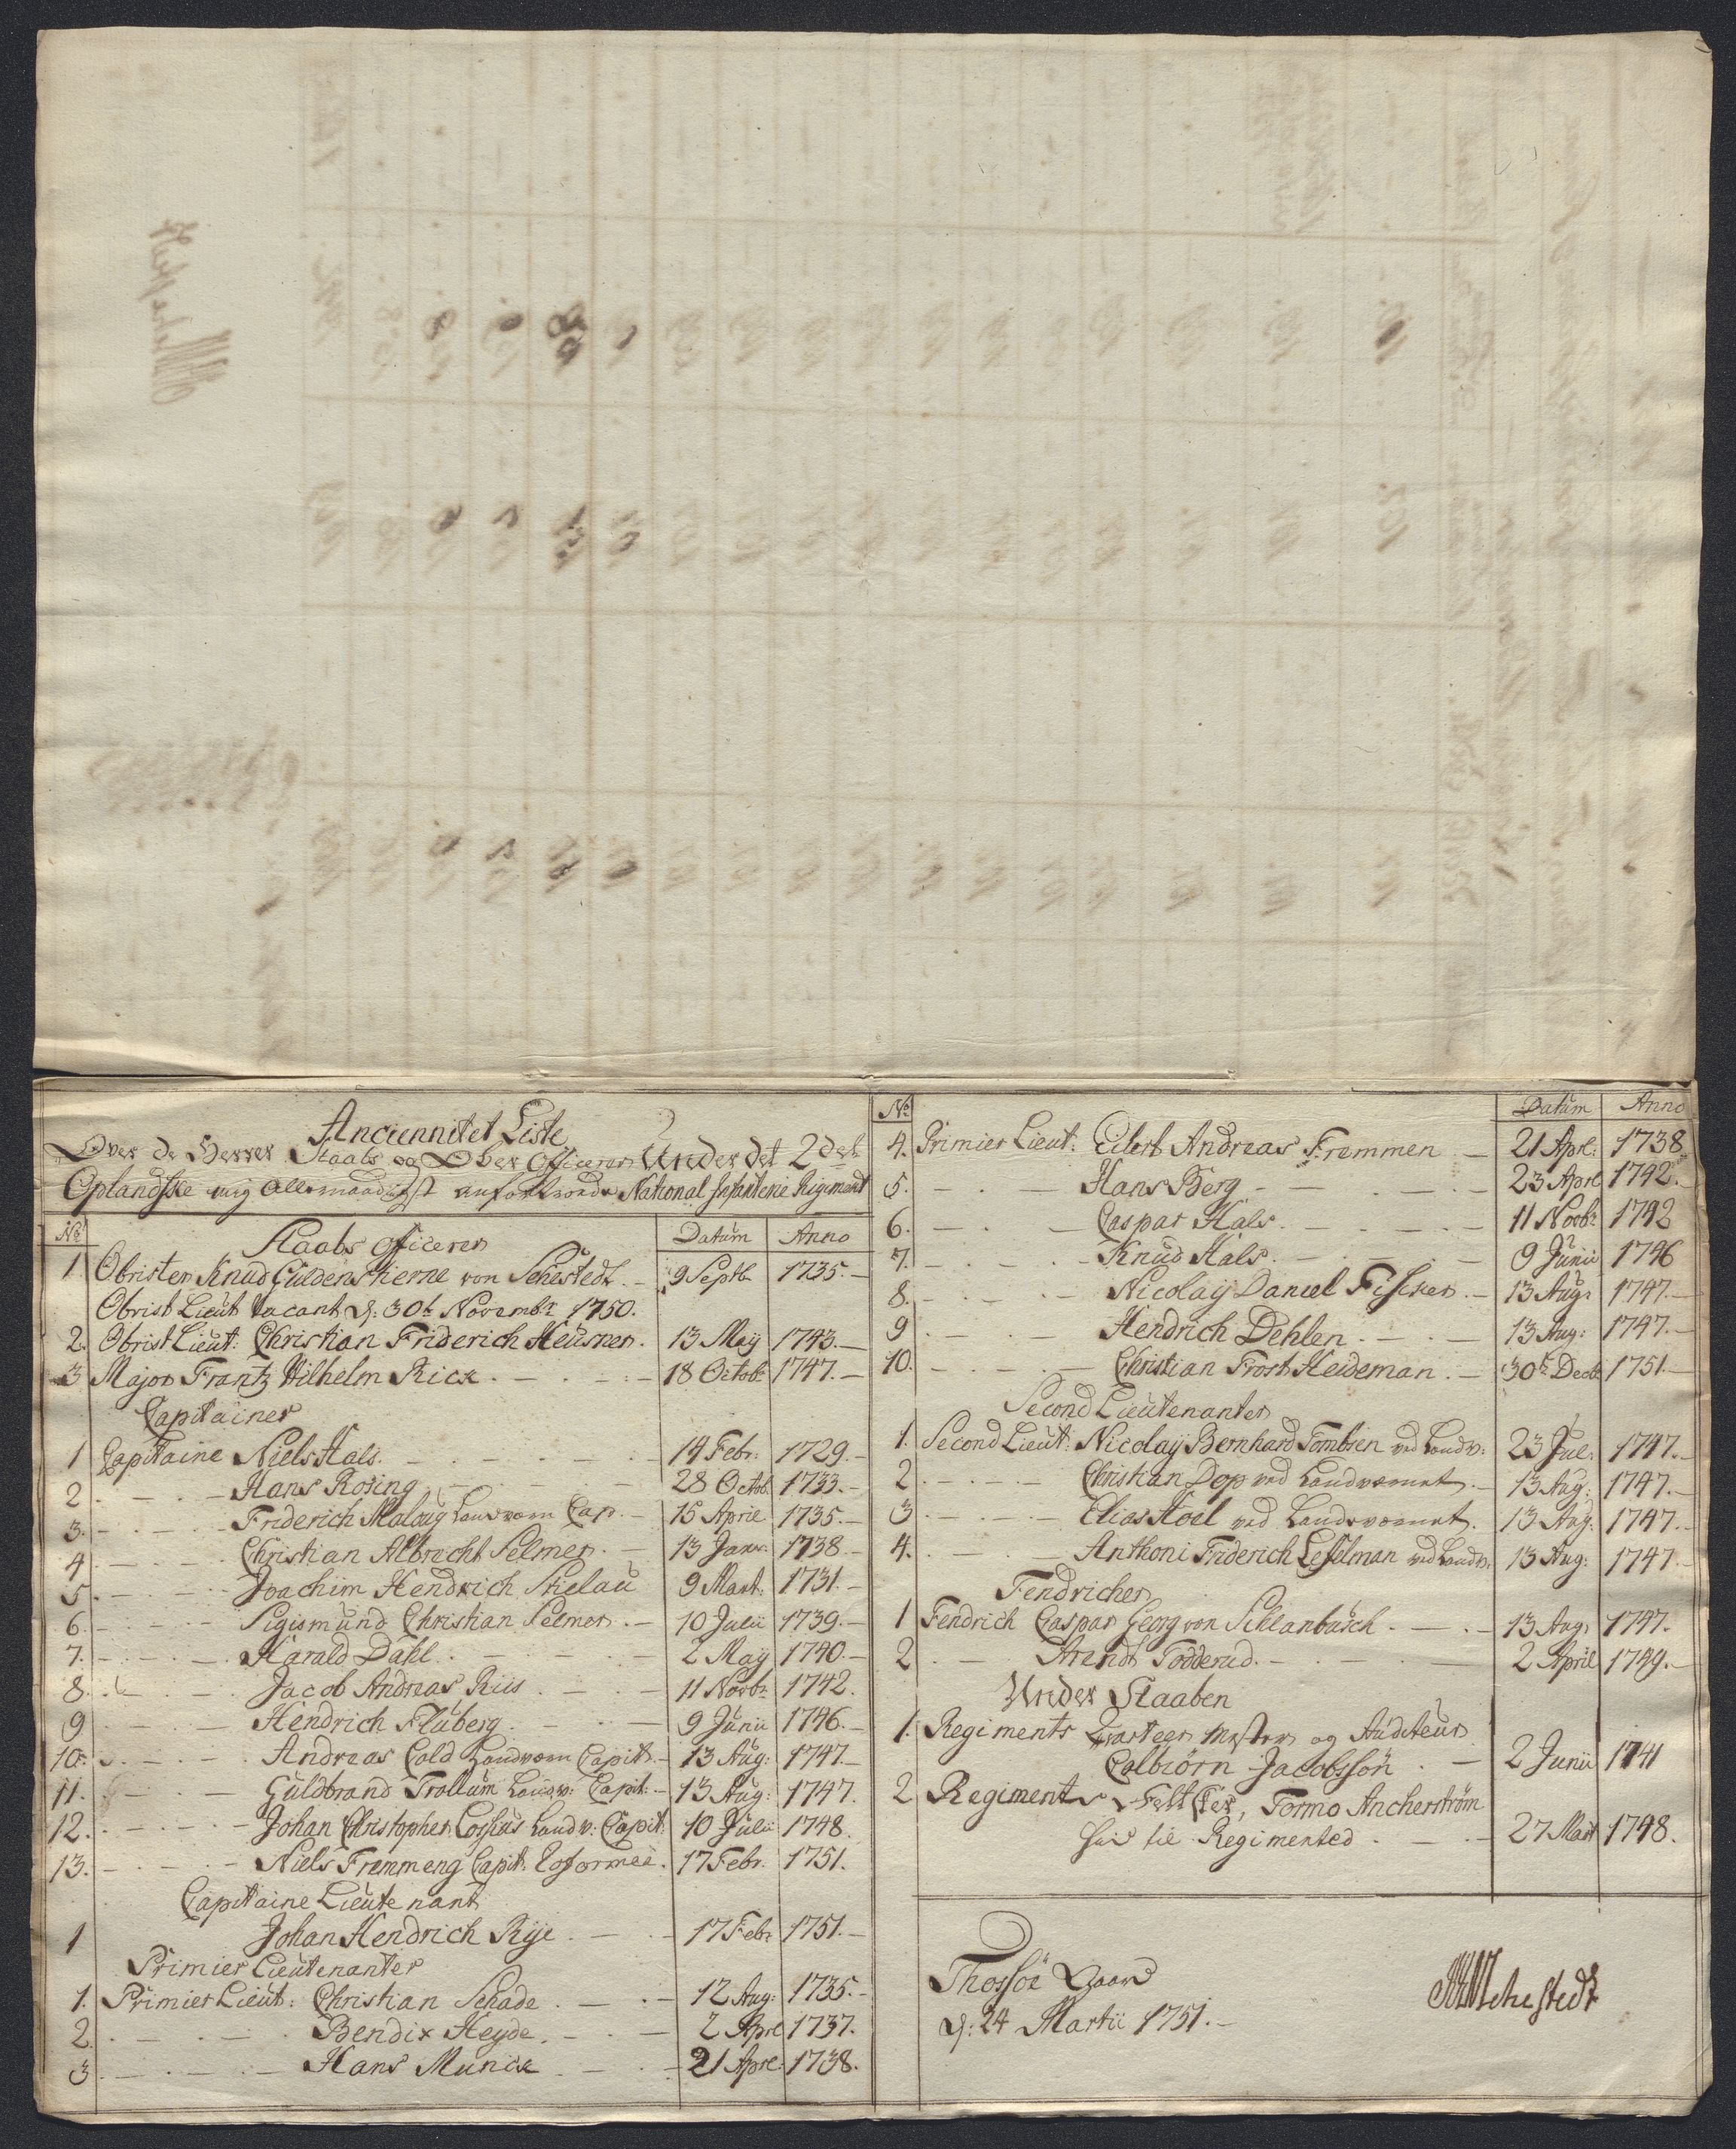 Anciennitet Liste
Over de Herrer Staabs og Ober Officerer Under det 2det
Oplandske mig allernaadigst anfortroede National Infanterie Regiment
No Staabs Officerer Datum Anno
1 Obrister Knud Gÿldenstierne von Sehestedt. 9 Septb. 1735.
Obrist Lieut vacant d: 30t Novembr 1750.
2. Obrist Lieut: Christian Friderich Heusner. 13 Maÿ 1743.
3 Major Frantz Wilhelm Rick 18 Octobr 1747.
Capitainer
1 Capitaine Niels Hals. 14 Febr: 1729.
2 Hans Rosing 28 Octob. 1733.
3. Friderich Malaug Landværn Cap. 15 April 1735.
4 Christian Albrecht Selmer. 13 Janv: 1738
5. Joachim Hendrich Stielau 9 Mart: 1731.
6. Sigismund Christian Selmer. 10 Julii 1739.
7. Harald Dahl. 2 Maÿ 1740.
8. Jacob Andreas Riis 11 Novbr 1742.
9 Hendrich Fluberg. 9 Junii 1746.
10. Andreas Cold Landværn Capit. 13 Aug: 1747.
11. Guldbrand Trollum Landv: Capit: 13 Aug: 1747.
12. Johan Christopher Cossius Landv: Capit: 10 Julii 1748.
13. Niels Fremmeng Capit: 17 Febr. 1751.
Capitaine Lieutenant
1 Johan Hendrich Rÿe 17 Febr 1751.
Primier Lieutenanter
1. Primier Lieut: Christian Schade 12 Aug: 1735.
2 Bendix Heyde. 2 Aprl 1737.
3 Hans Munck 21 Aprl: 1738.
No Datum Anno
4. Primier Lieut: Eilert Andreas Fremmen 21 Aprl: 1738
5. Hans Berg 23 Aprl 1742.
6. Caspar Hals. 11 Novbr 1742
7. Knud Hals. 9 Junii 1746
8. Nicolaÿ Daniel Fischer. 13 Aug: 1747.
9 Hendrich Dehlen. 13 Aug: 1747.
10. Christian Frost Heideman. 30t Decbr 1751.
Second Lieutenanter
1. Second Lieut: Nicolaÿ Bernhard Tombsen ved Landv: 23 Jul: 1747.
2 Christian Dop ved Landværnet. 13 Aug: 1747.
3 Elias Hoel ved Landeværnet. 13 Aug: 1747.
4. Anthoni Friderich Lesselman ved Landv: 13 Aug: 1747.
Fendricher
1 Fendrich Caspar Georg von Schlanbusch. 13 Aug: 1747.
2 Arendt Todderud. 2 April 1749.
Under Staaben
1. Regiments Qvarteer Mester og Auditeur
Colbiörn Jacobssön 2 Junii 1741
2 Regiments Feltskier, Tormo Ancherström
til Regimented 27 Mart 1748.
Thossöe Gaard
d: 24 Martii 1751.
Sehestedt